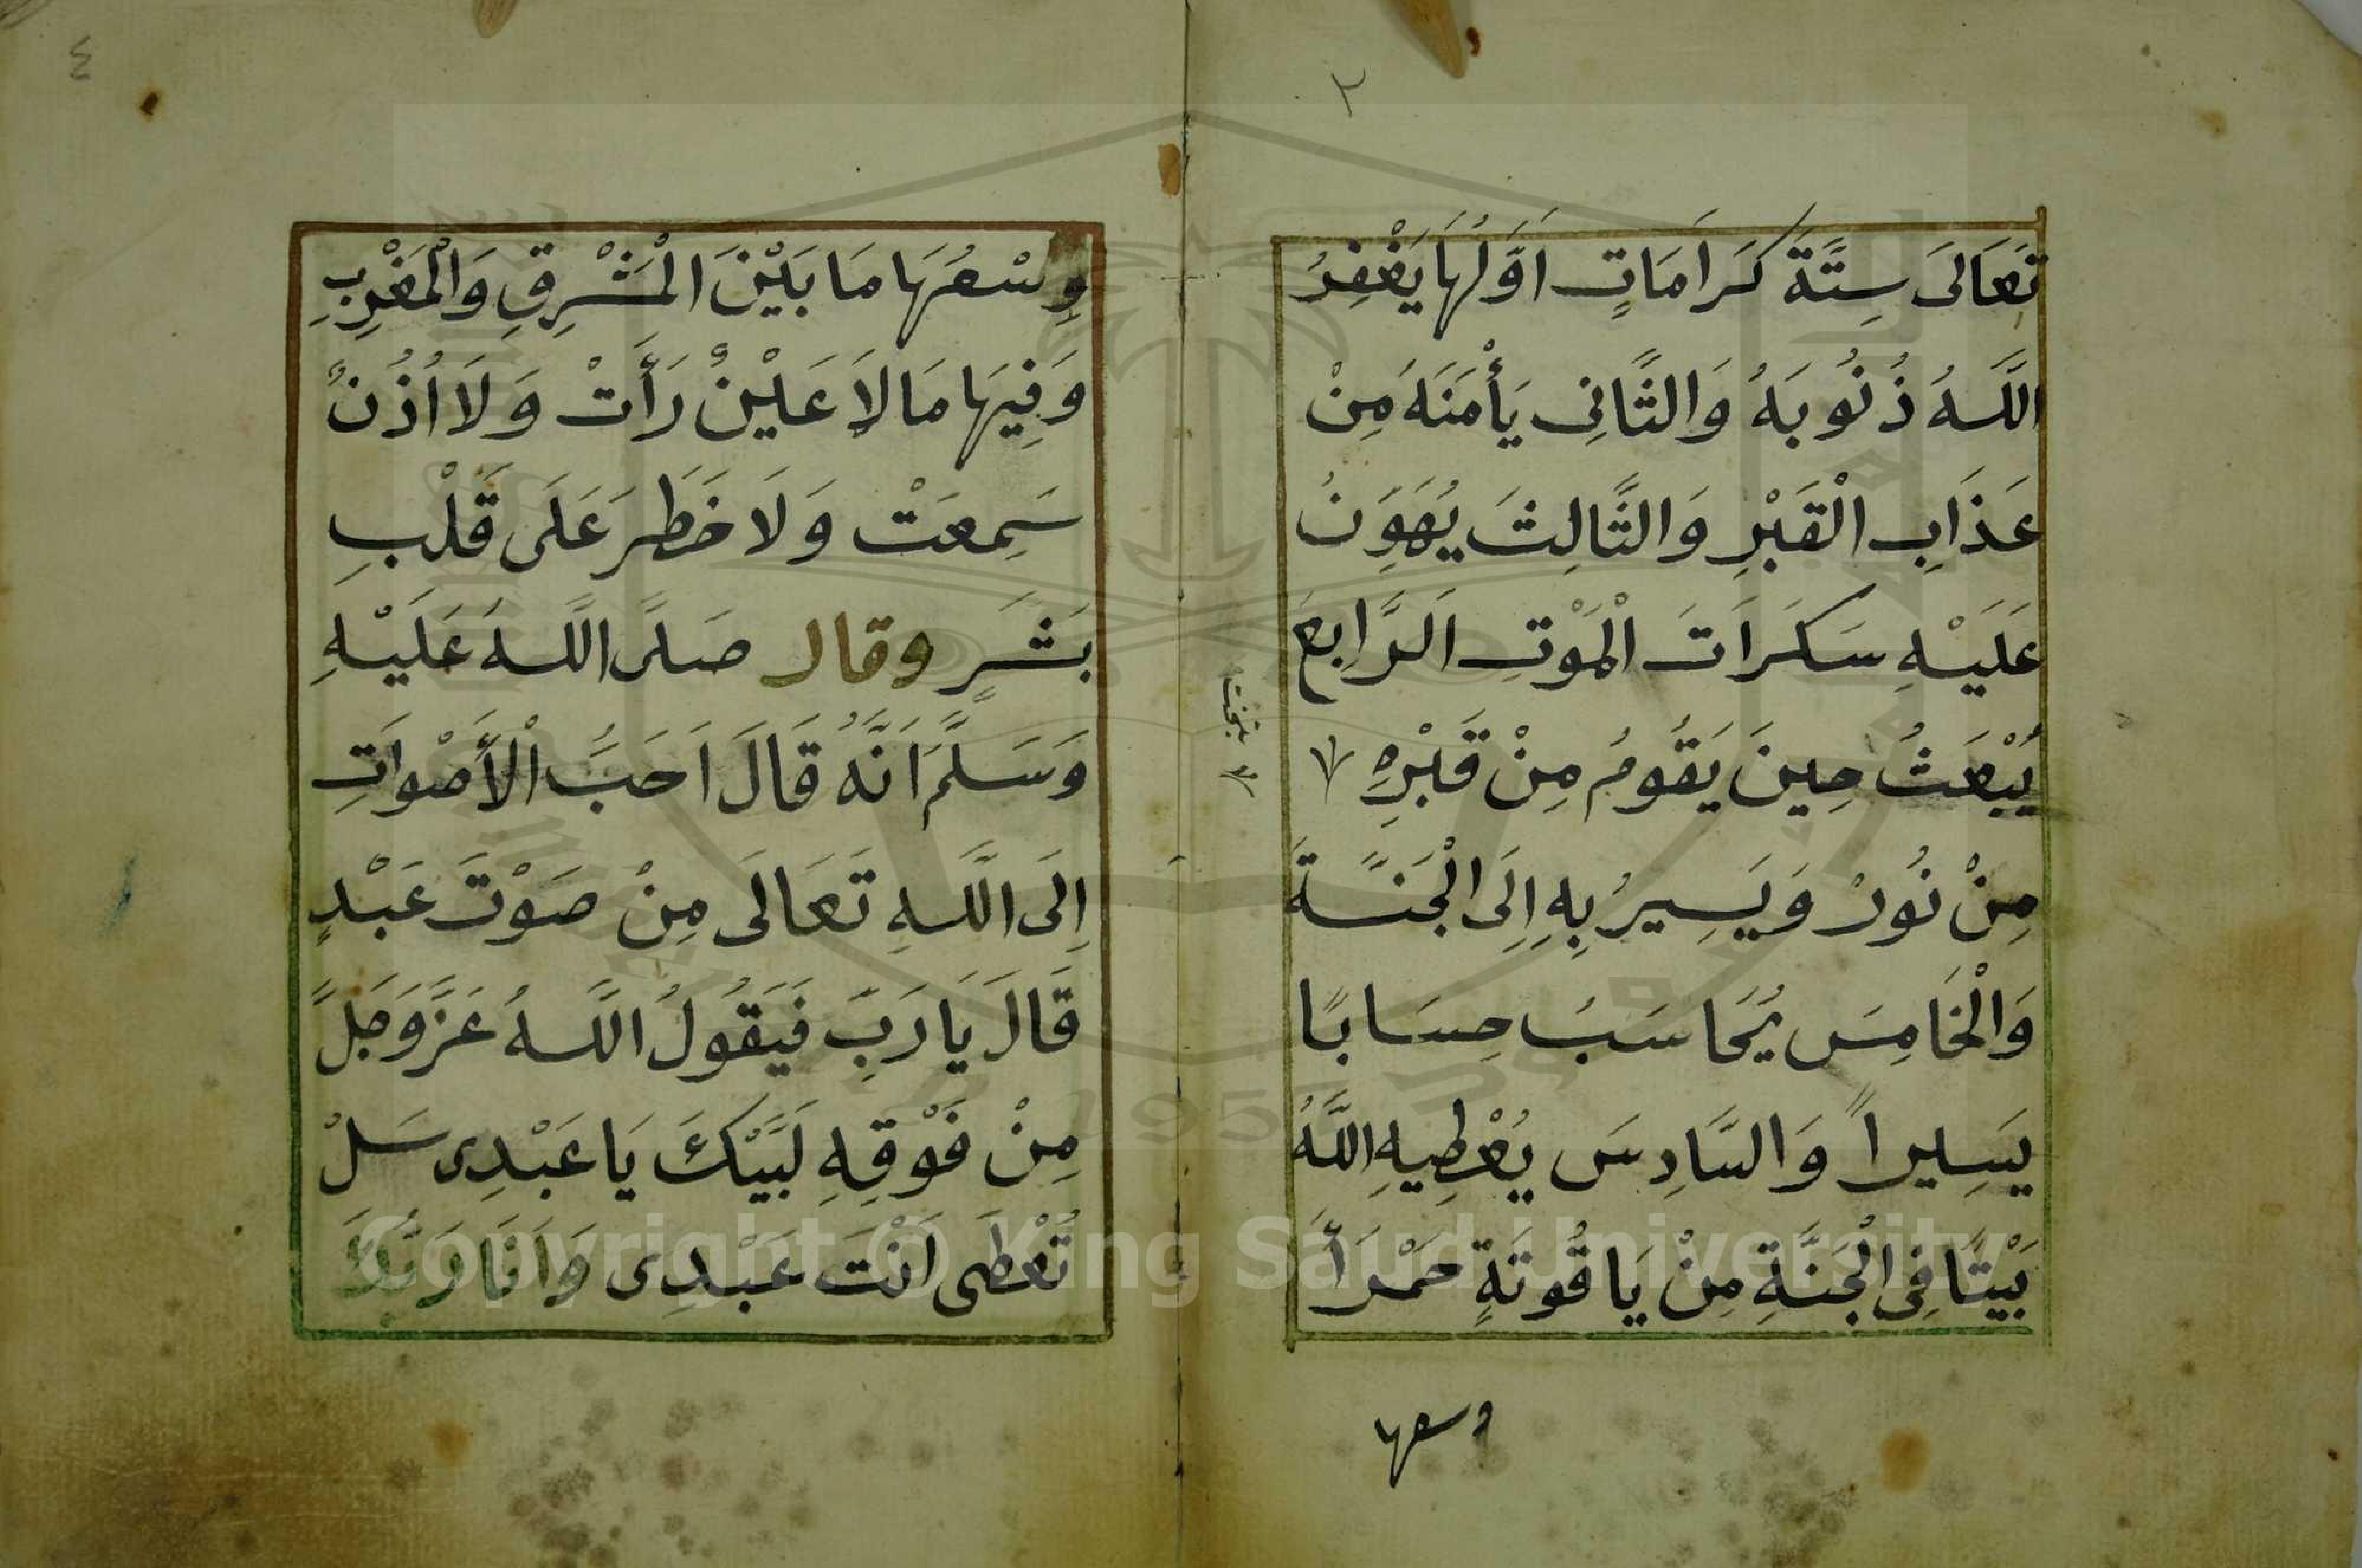 ٣
تَعَالَى سِتَّةَ كَرَامَاتٍ اَوَّلُهَا يَغْفِرُ
اللَّهُ ذُنُوبَهُ وَالثَّانِى يَأْمَنَهُ مِنْ
عَذَابِ الْقَبْرِ وَالثَّالِثَ يُهَوِّنُ
عَلَيْهِ سَكَرَاتَ الْمَوْتِ اَلرَّابِعَ
يُبْعَثُ حِينَ يَقُومُ مِنْ قَبْرِهِ
مِنْ نُورْ وَيَسِيرُ بِهِ اِلَى الْجَنَّةَ
وَالْخَامِسَ يُحَاسَبُ حِسَابًا
يَسِيراً وَالسَّادِسَ يُعْطِيهِ اللَّهُ
بَيْتًا فِى الْجَنَّةِ مِنْ يَاقُوتَةٍ حَمْرَأَ
وسعها
٤
وِسْعُهَا مَا بَيْنَ الْمَشْرِقِ وَالْمَغْرِبِ
وَفِيهَا مَا لاَ عَيْنٌ رَأَتْ وَلَا اُذُنٌ
سَمِعَتْ وَلَا خَطَرَ عَلَى قَلْبِ
بَشَرٍ وقال صَلَّى اللَّهُ عَلَيْهِ
وَسَلَّمَ اَنَّهُ قَالَ اَحَبُّ الْأَصْوَاتِ
اِلَى اللَّهِ تَعَالَى مِنْ صَوْتَ عَبْدٍ
قَالَ يَا رَبِّ فَيَقُولُ اللَّهُ عَزَّ وَجَلَّ
مِنْ فَوْقِهِ لَبَيَّكَ يَا عَبْدِى سَلْ
تُعْطَى اَنْتَ عَبْدِى وَاَنَا رَبُّكَ
Copyright © King Saud University
1957